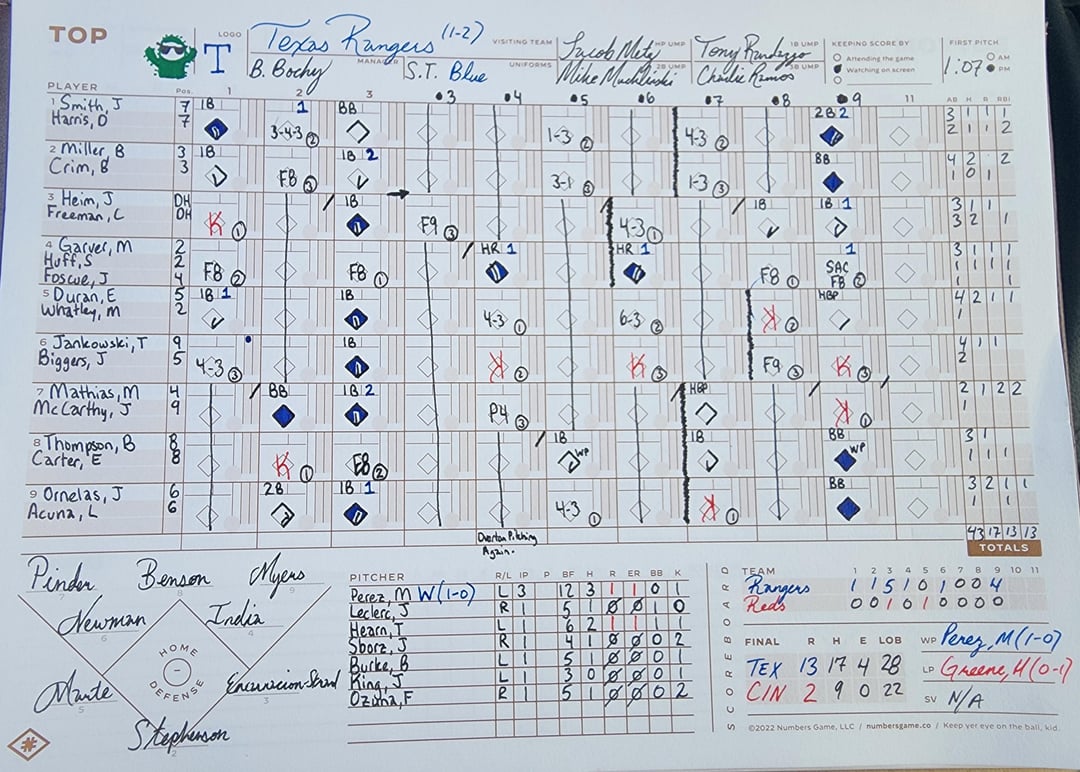 TOP
LOGO T Texas Rangers (1-2) VISITING TEAM
B. Bochy MANAGER S.T. Blue UNIFORMS
Jacob Metz HP UMP
Mike 2B UMP
Tony 1B UMP
Charlie Ramos 3B UMP
KEEPING SCORE BY
Attending the game
Watching on screen
FIRST PITCH
1:07 AM
PM
PLAYER Pos. 1 2 3 •3 •4 •5 •6 •7 •8 •9 11 AB H R RBI
1 Smith, J 7 1B 1 BB 2B 2 3 1 1 1
Harris, D 7 3-4-3 2 1-3 2 4-3 2 2 1 1 2
2 Miller, B 3 1B 1B 2 BB 4 2 2
Crim, B 3 F8 3 3-1 3 1-3 3 1 0 1
3 Heim, J DH 1B 1B 1B 1 3 1 1
Freeman, L DH K 1 F9 3 4-3 1 3 2 1
4 Garver, M 2 HR 1 HR 1 1 3 1 1 1
Huff, S 2 SAC 1 1 1 1
Foscue, J 4 F8 2 F8 1 F8 1 F8 2 1
5 Duran, E 5 1B 1 1B HBP 4 2 1 1
Whatley, M 2 4-3 1 6-3 2 K 2 1
6 Jankowski, T 9 1B 4 1 1
Biggers, J 5 4-3 3 K 2 K 3 F9 3 K 3 2
7 Mathias, M 4 BB 1B 2 HBP 2 1 2 2
McCarthy, J 9 P4 3 K 1 1
8 Thompson, B 8 1B WP 1B BB WP 3 1
Carter, E 8 K 1 F8 2 1 1 1
9 Ornelas, J 6 2B 1B 1 BB 3 2 1 1
Acuna, L 6 4-3 1 K 1 1 1
43 17 13 13
Overton Pitching
Again.
TOTALS
Pinder Benson Myers
7 8 9
Newman India
6 4
HOME
DEFENSE
Encarnacion-Strand
5 3
Stephenson
2
PITCHER R/L IP P BF H R ER BB K
Perez, M W(1-0) L 3 12 3 1 1 0 1
Leclerc, J R 1 5 1 0 0 1 0
Hearn, T L 1 6 2 1 1 1
Sborz, J R 1 4 1 0 0 0 2
Burke, B L 1 5 1 0 0 0 1
King, J L 1 3 0 0 0 0 1
Ozuna, F R 1 5 1 0 0 0 2
SCOREBOARD
TEAM 1 2 3 4 5 6 7 8 9 10 11
Rangers 1 1 5 1 0 1 0 0 4
Reds 0 0 1 0 1 0 0 0 0
FINAL R H E LOB
TEX 13 17 4 28
CIN 2 9 0 22
WP Perez, M (1-0)
LP Greene, H (0-1)
SV N/A
©2022 Numbers Game, LLC / numbersgame.co / Keep yer eye on the ball, kid.